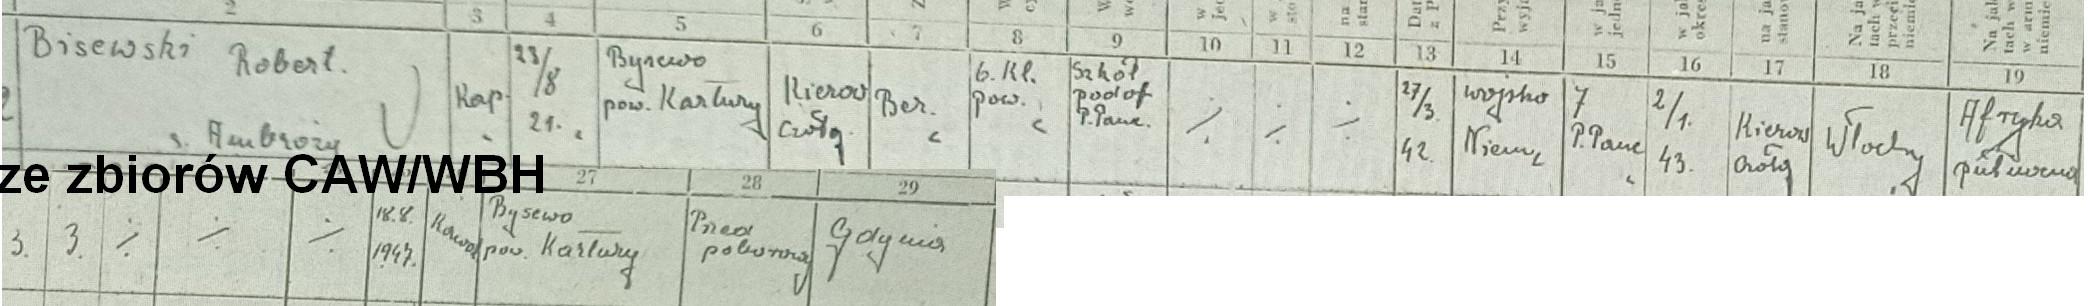 2 3 4 5 6 7 8 9 10 11 12 13 14 15 16 17 18 19
Bisewski Robert.
s. Ambroży
Kap.
23/8
21.
Bysewo
pow. Kartuzy
Kierow
Czołg.
Ber.
6. Kl.
pow.
Szkoł
podof
P.Panc.
÷ ÷ ÷
27/3.
42.
wojsko
Niem.
7
P.Panc
2/1.
43.
Kierow
Czołg
Włochy
Afryka
północna
ze zbiorów CAW/WBH
27 28 29
3. 3. ÷ ÷ ÷
18.8.
1947.
Kawal
Bysewo
pow. Kartuzy
Przed
poborową
Gdynia